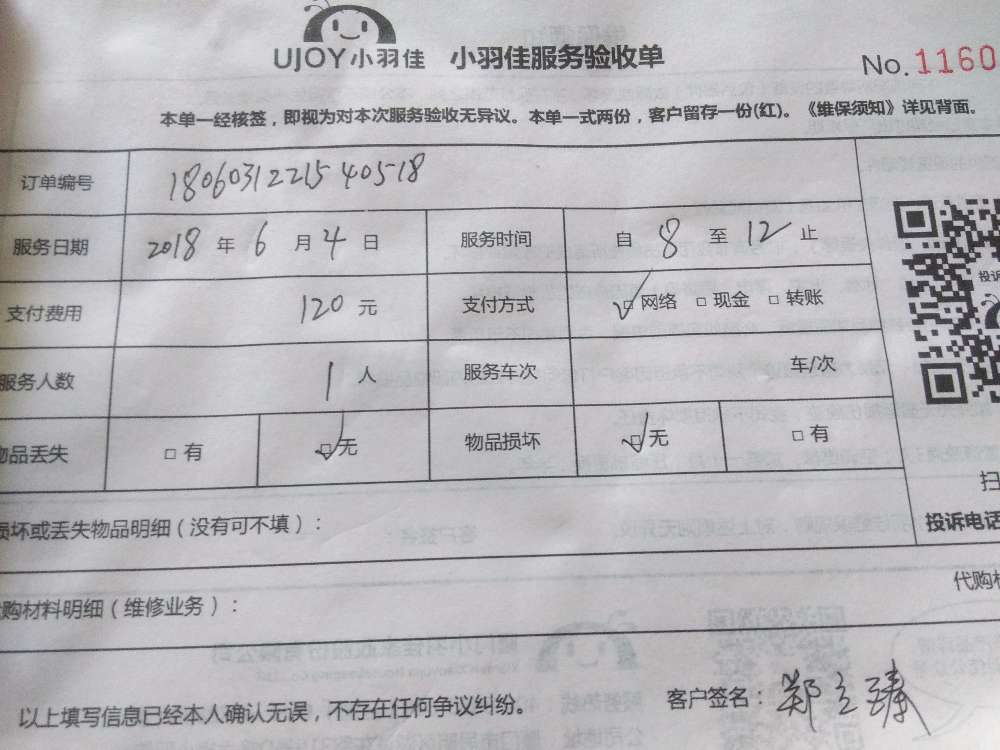 UJOY小羽佳 小羽佳服务验收单
No.1160
本单一经核签，即视为对本次服务验收无异议。本单一式两份，客户留存一份(红)。《维保须知》详见背面。
订单编号 180603122154 0518
服务日期 2018 年 6 月 4 日 服务时间 自 8 至 12 止
支付费用 120 元 支付方式 □网络 □现金 □转账
服务人数 1 人 服务车次 车/次
物品丢失 □有 □无 物品损坏 □无 □有
损坏或丢失物品明细（没有可不填）：
投诉
扫
投诉电话
购材料明细（维修业务）：
代购材
以上填写信息已经本人确认无误，不存在任何争议纠纷。
客户签名：郑立臻